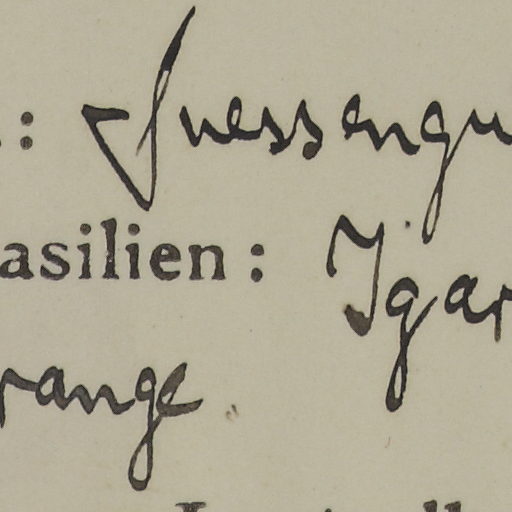 .: Suessengu
asilien: Igar
range